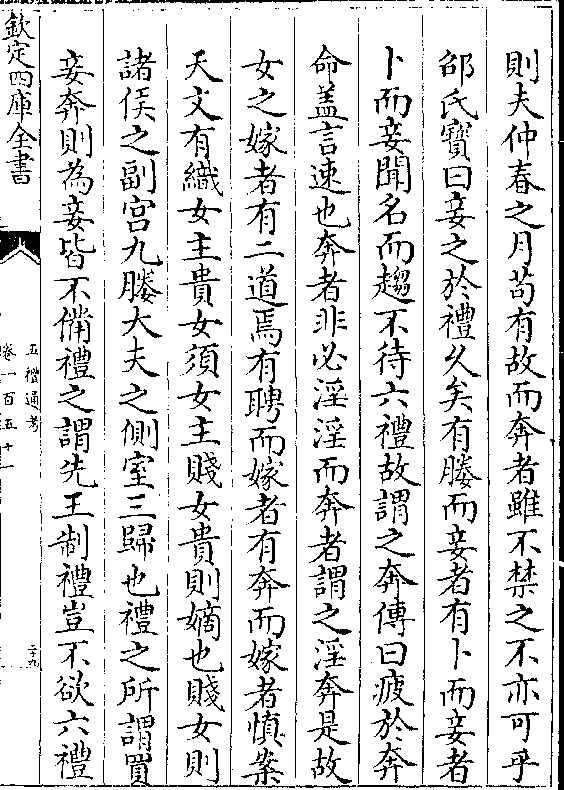 則夫仲春之月苟有故而奔者雖不禁之不亦可乎
邵氏寶曰妾之於禮久矣有媵而妾者有卜而妾者
卜而妾聞名而趨不待六禮故謂之奔傳曰疲於奔
命盖言速也奔者非必淫淫而奔者謂之淫奔是故
女之嫁者有二道焉有聘而嫁者有奔而嫁者慎案
天文有織女主貴女須女主賤女貴則嫡也賤女則
諸侯之副宫九媵大夫之側室三歸也禮之所謂買
妾奔則為妾皆不備禮之謂先王制禮豈不欲六禮
欽定四庫全書
五禮通考
卷一百五十一
二十九